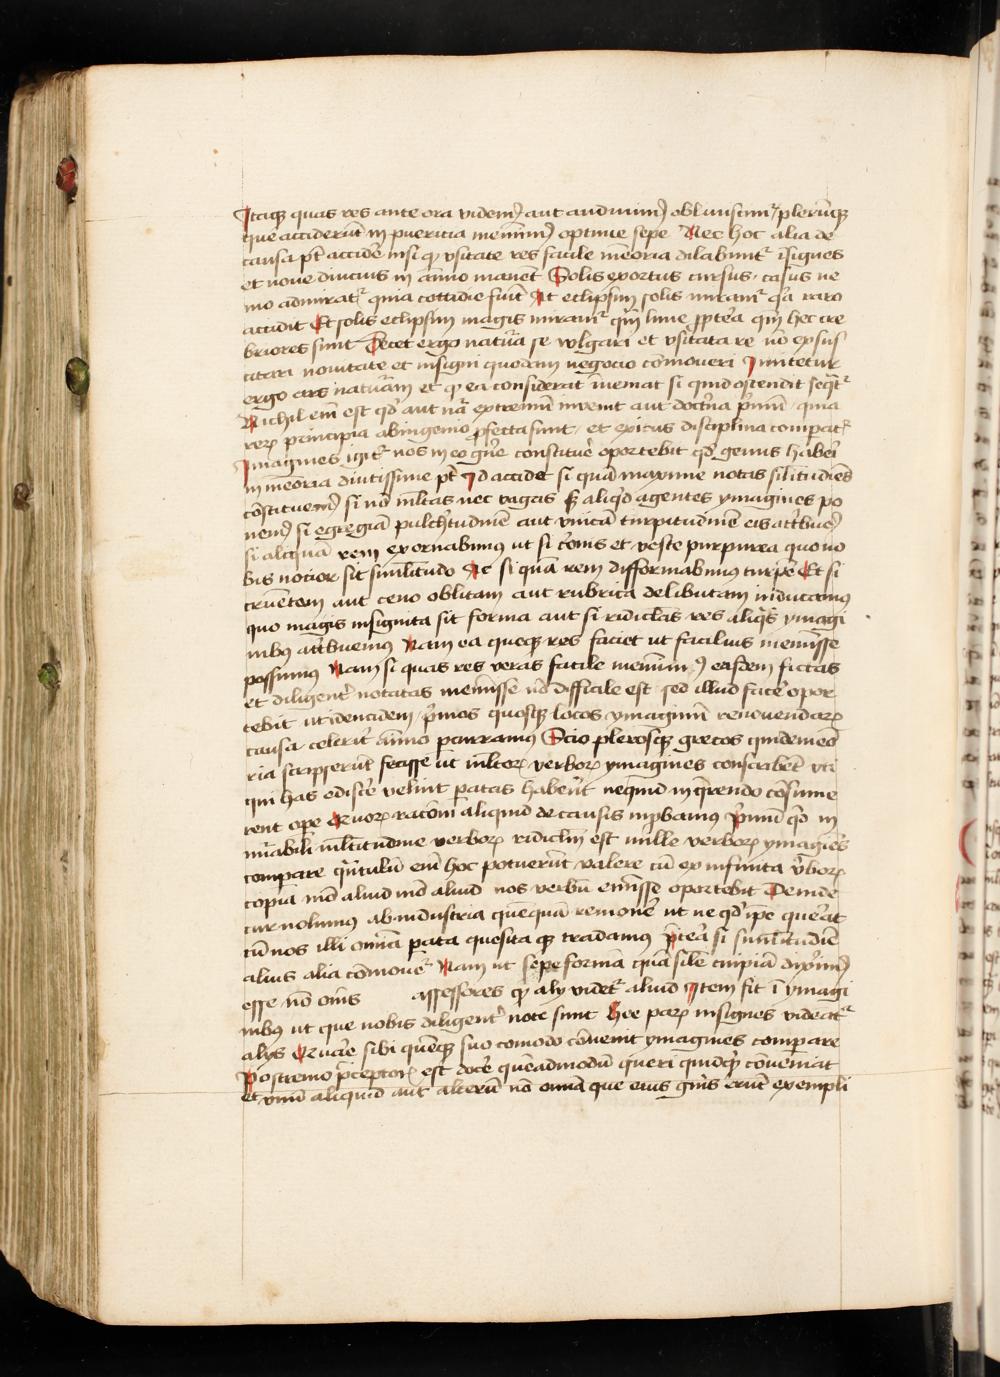 Itaq₃ quas res ante ora videmꝰ aut audiuimꝰ obliuiscim̄ꝰ plerūq₃
que acciderūt in puericia meminimꝰ optime sepe Nec hoc alia de
causa pōt accidē nisi qꝫ vsitate res facile memoria dilabunt̄ īsignes
et noue diucius in animo manēt Solis exortus cursus casus ne
mo admirat̄ quia cottidie fiūt At eclipsim solis mirant̄ qꝛ raro
accidit Et solis eclipsim magis mirant̄ qm̄ lune ꝓpterea qm̄ hec cre
briores sunt Decet ergo natura se vulgari et vsitata re nō exsus
citari nouitate et insigni quodam negocio cōmoueri Imitetur
ergo ars naturam et qꝫ ea considerat inueniat si quid ostendit seqt̄
Nichil em̄ est qd̄ aut nā extremū inuenit aut doctrīa p̄mū quia
reꝝ principia ab ingenio ꝓfecta sunt / et exitus disciplina compat̄
Imagines igit̄ nos in eo gn̄e constituē oportebit qd̄ genus haberi
in memoria diutissime pt̄ Id accidet si quā maxime notas silitudīes
cōstituemꝰ si nō mltas nec vagas sꝫ aliqd agentes ymagines po
nemꝰ si egregiā pulchtudinē aut vnicā turpitudinē eis attbuemꝰ
si aliquā rem exornabimꝰ ut si coronis et veste purpurea quo no
bis notior sit similitudo Ac si quā rem difformabimꝰ turpē Et si
cruentam aut ceno oblitam aut rubrica delibutam inducamꝰ
quo magis insignita sit forma aut si ridiclas res aliqs ymagi
nibꝰ attbuemꝰ Nam ea queq₃ res faciet ut facilius meminisse
possimꝰ Nam si quas res veras facile meminimꝰ easdem fictas
et diligentʳ notatas meminisse nō difficile est sed illud facē opor
tebit ut identidem p̄mos quosq₃ locos ymaginū renouendaꝝ
causa celeritʳ animo pcurramꝰ Scio plerosq₃ grecos qui de meō
ria scripserūt fecisse ut mltoꝝ verboꝝ ymagines conscribēt vti
qui has ediscē velint patas habeūt ne quid in q̄rendo cōsume
rent ope Quoꝝ racōni aliquid de causis inpbamꝰ Primū qd̄ in
inn̄abili mltitudine verboꝝ ridiclm̄ est mille verboꝝ ymagīes
comparare qntulū em̄ hoc potuerūt valere cū ex infinita vboꝝ
copia mō aliud mō aliud nos verbū eminisse oportebit Deinde
cur nolumꝰ ab industria quequā remouē ut ne qd ipē querat
cū nos illi omia pata quesita q₃ tradamꝰ Prīea si similitudīe
alius alia cōmouet̄ Nam ut sepe formā quā silē cuipiā dixīmꝰ
esse nō oīns assessores qꝫ alij videt̄ aliud Item fit ī ymagi
nibꝰ ut que nobis diligentʳ note sunt hee paꝝ insignes videāt̄
alijs Quare sibi quēq₃ suo comodo cōuenit ymagines comparare
Postremo p̄ceptorꝭ est docē quēadmodū queri quidq̄ cōueniat
et vnū aliquid aut alterū nō omnia que eius gn̄is erūt exempli